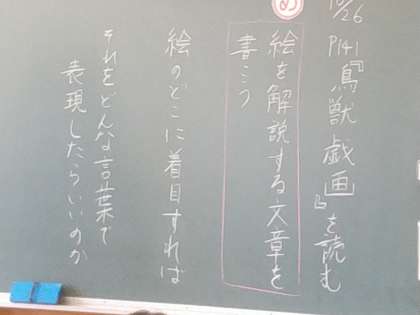 10/26
P141『鳥獣戯画』を読む
め
絵を解説する文章を
書こう
絵のどこに着目すれば
それをどんな言葉で
表現したらいいのか